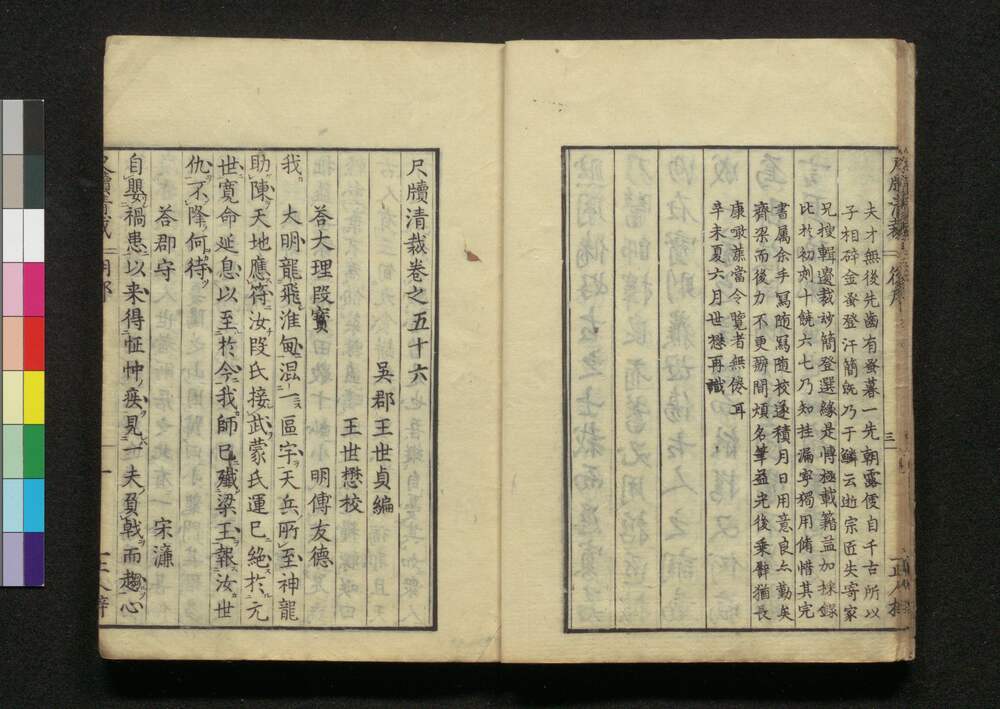 尺牘清裁 後序 三
夫才無後先齒有蚤暮一先朝露便自千古所以
子相碎金蚤登汗簡旣乃于鱗云逝宗匠失寄家
兄搜輯遺裁玅簡登選緣是博極載籍益加採錄
比於初刻十饒六七乃知挂漏寧獨用脩惜其完
書屬余手寫隨寫隨校遂積月日用意良亦勤矣
齊梁而後力不更辦間煩名筆益光後乘譬猶長
康噉蔗當令覽者無倦耳
辛未夏六月世懋再識
尺牘清裁卷之五十六
吳郡王世貞編
王世懋校
荅大理段寶 明傅友德
我 大明龍飛淮甸混一區宇天兵所至神龍
助陳天地應符汝段氏接武蒙氏運已絕於元
世寬命延息以至於今我師已殲梁王報汝世
仇不降何待
荅郡守 宋濂
自嬰禍患以来得怔忡疾見一夫負戟而趨心